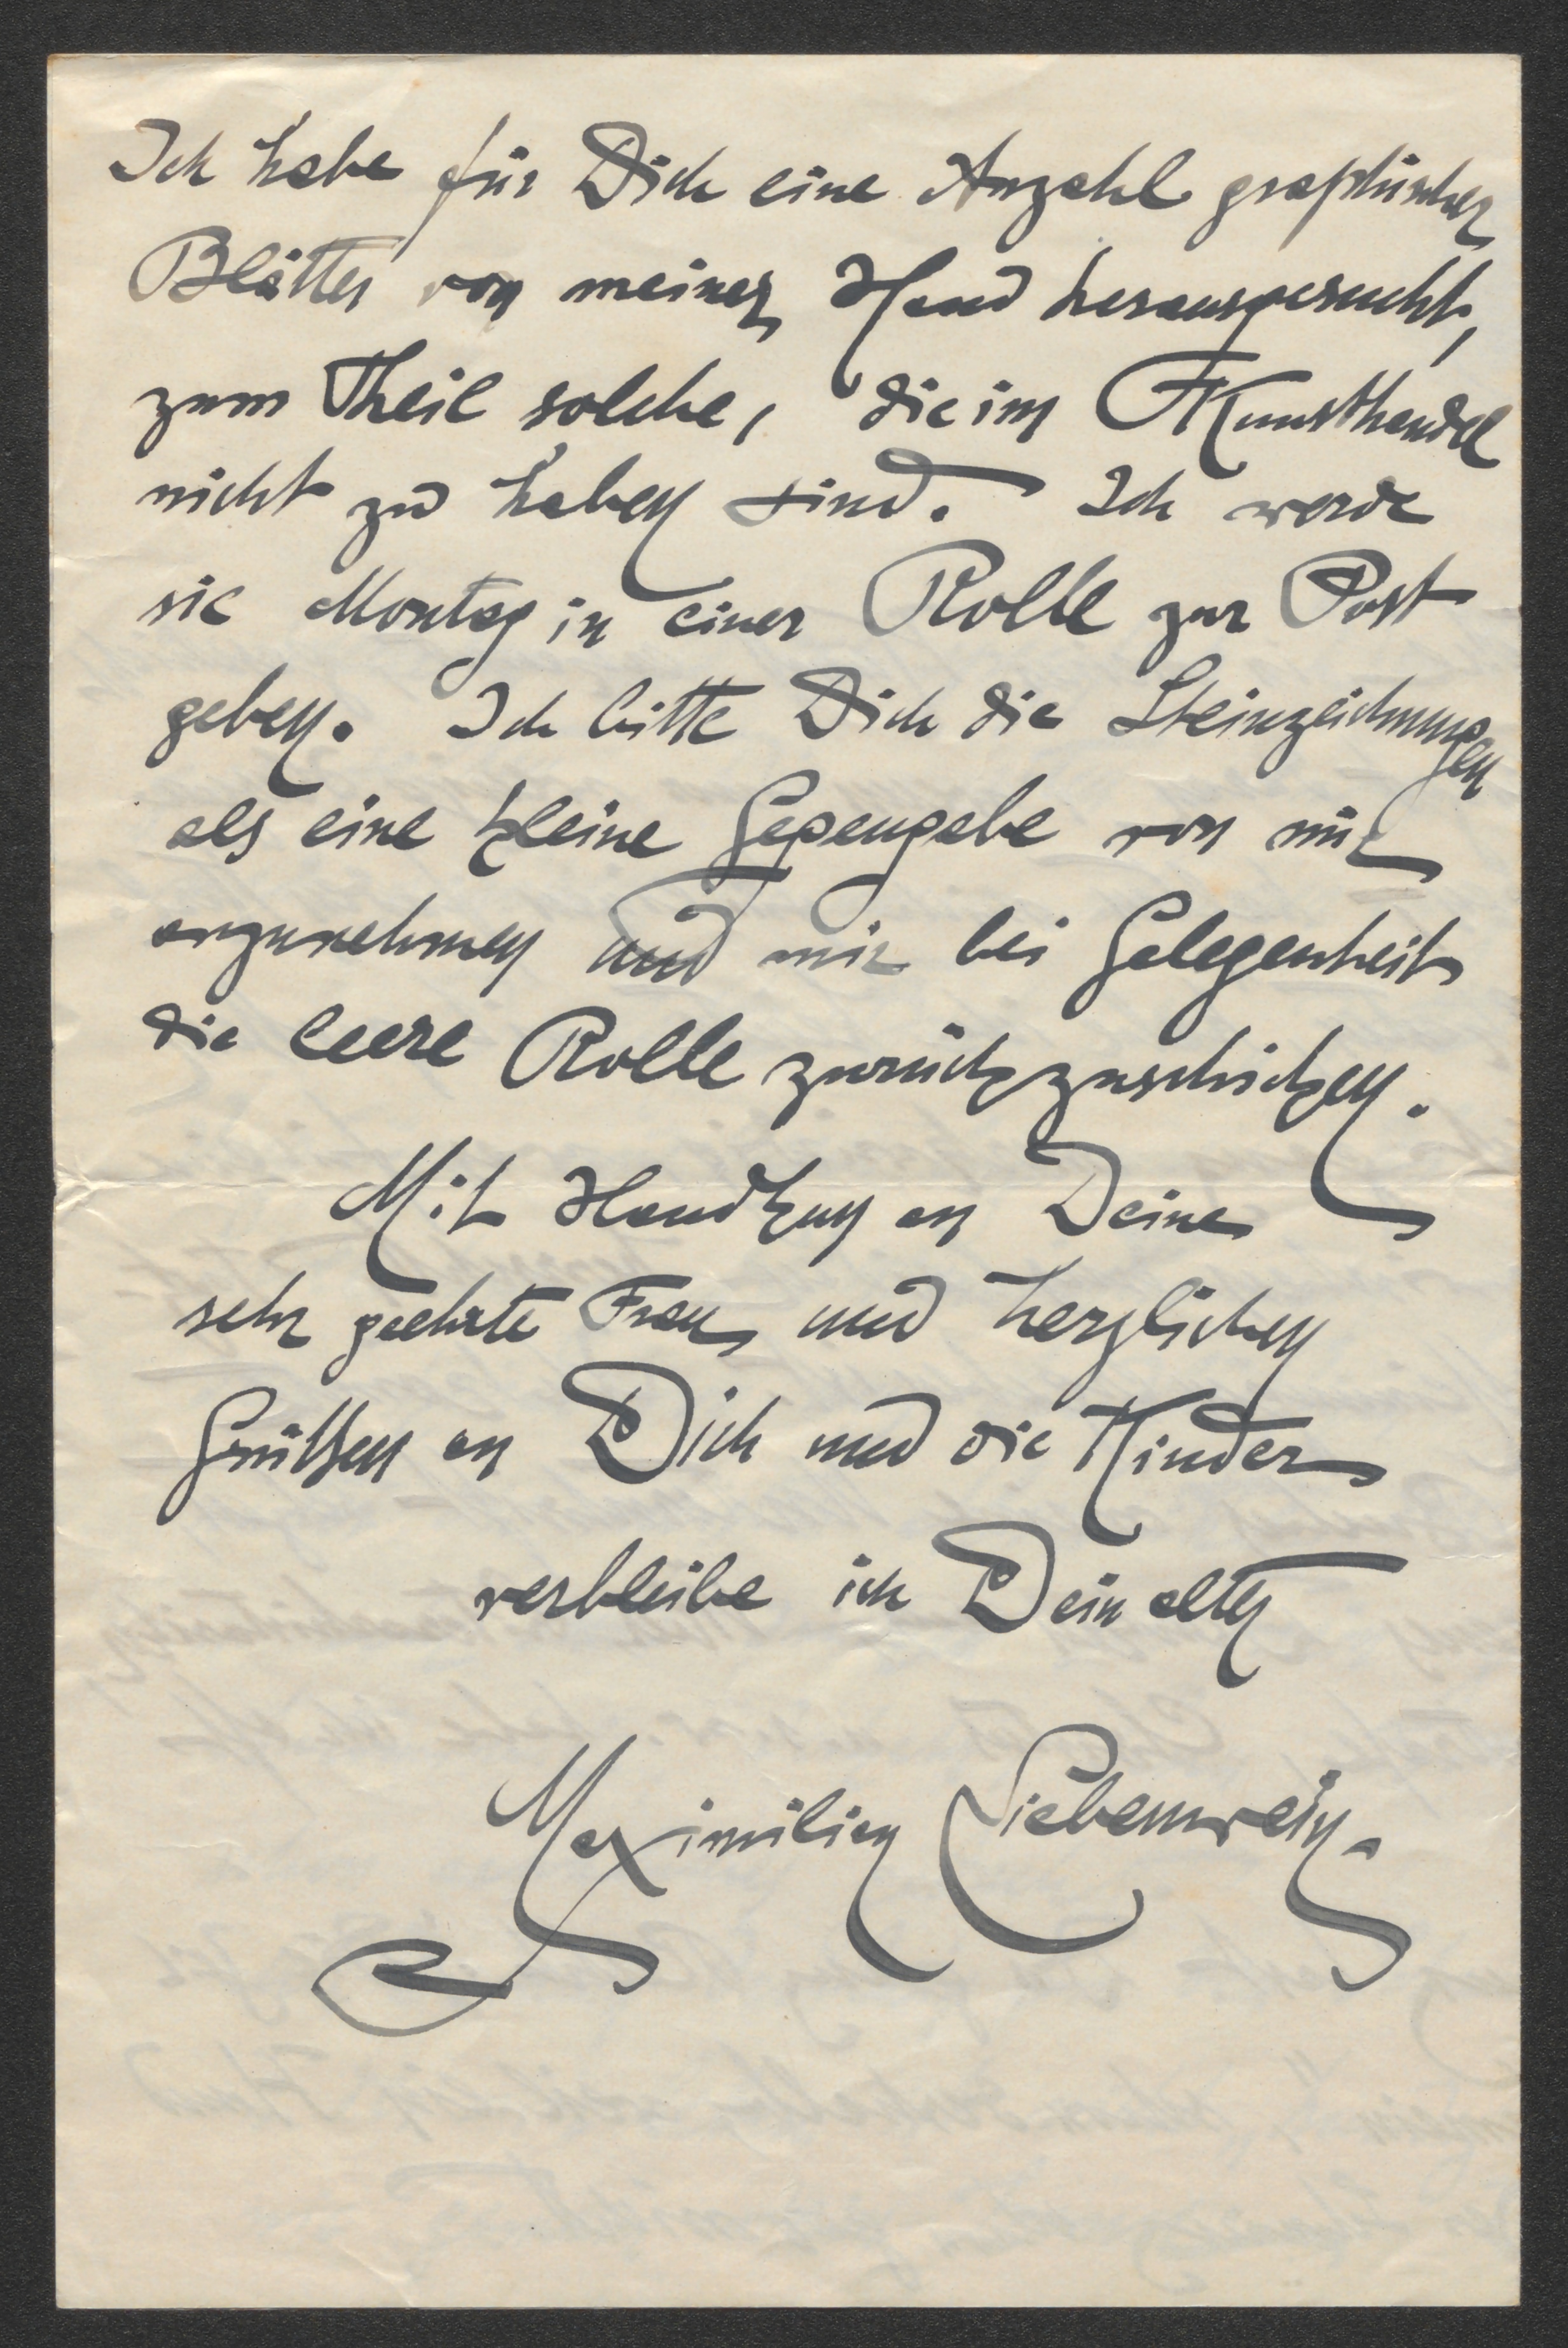 Ich habe für Dich eine Anzahl graphischer
Blätter von meiner Hand herausgesucht,
zum Theil solche, die im Kunsthandel
nicht zu haben sind. Ich werde
sie Montag in einer Rolle zur Post
geben. Ich bitte Dich die Steinzeichnungen
als eine kleine Gegengabe von mir
anzunehmen und mir bei Gelegenheit
die leere Rolle zurückzuschicken.
Mit Handkuss an Deine
sehr geehrte Frau und herzlichen
Grüßen an Dich und die Kinder
verbleibe ich Dein alter
Maximilian Liebenwein.